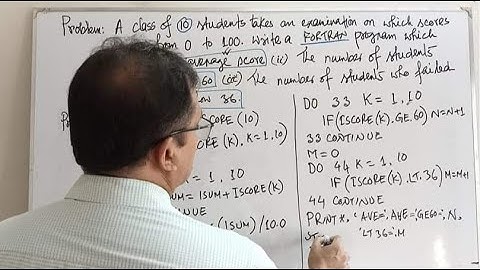 Problem: A class of 10 students takes an examination on which scores
from 0 to 100. Write a FORTRAN program which
average score (ii) The number of students
60 (iii) The number of students who failed
36.
ISCORE (10)
ISCORE (K), K = 1, 10)
1, 10
= ISUM + ISCORE (K)
(ISUM) / 10.0
DO 33 K = 1, 10
IF (ISCORE (K). GE. 60) N = N+1
33 CONTINUE
M = 0
DO 44 K = 1, 10
IF (ISCORE (K). LT. 36) M = M+1
44 CONTINUE
PRINT *, 'AVE=', AVE, 'GE60=', N,
'LT 36=', M
ST